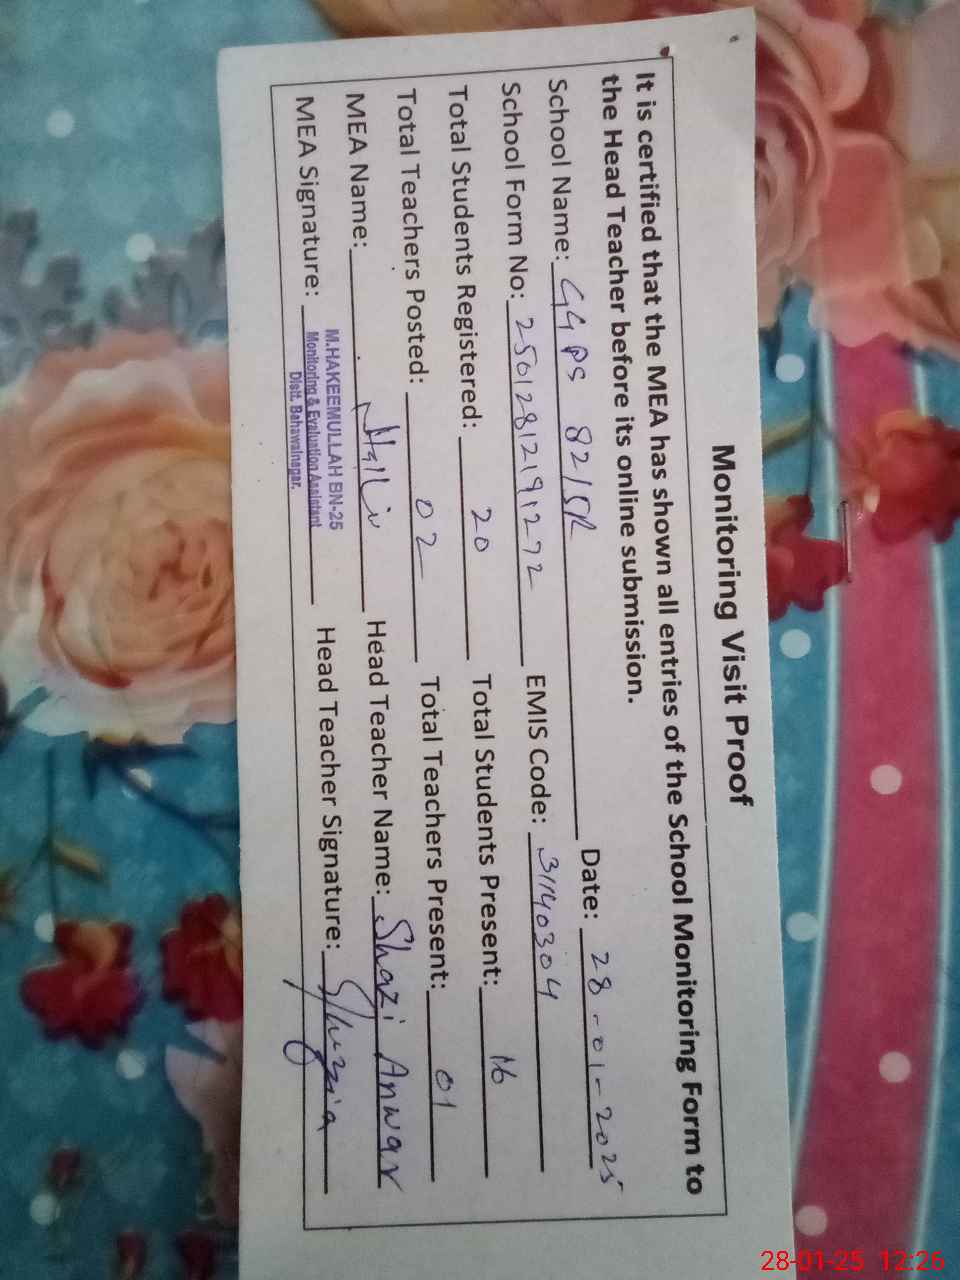 Monitoring Visit Proof
It is certified that the MEA has shown all entries of the School Monitoring Form to
the Head Teacher before its online submission.
School Name: GGPS 82/5R Date: 28-01-2025
School Form No: 25012812191272 EMIS Code: 31140304
Total Students Registered: 20 Total Students Present: 16
Total Teachers Posted: 02 Total Teachers Present: 01
MEA Name: Head Teacher Name: Shazi Anwar
MEA Signature: Head Teacher Signature: Shazia
M.HAKEEMULLAH BN-25
Monitoring & Evaluation Assistant
Distt. Bahawalnagar.
28-01-25 12:26